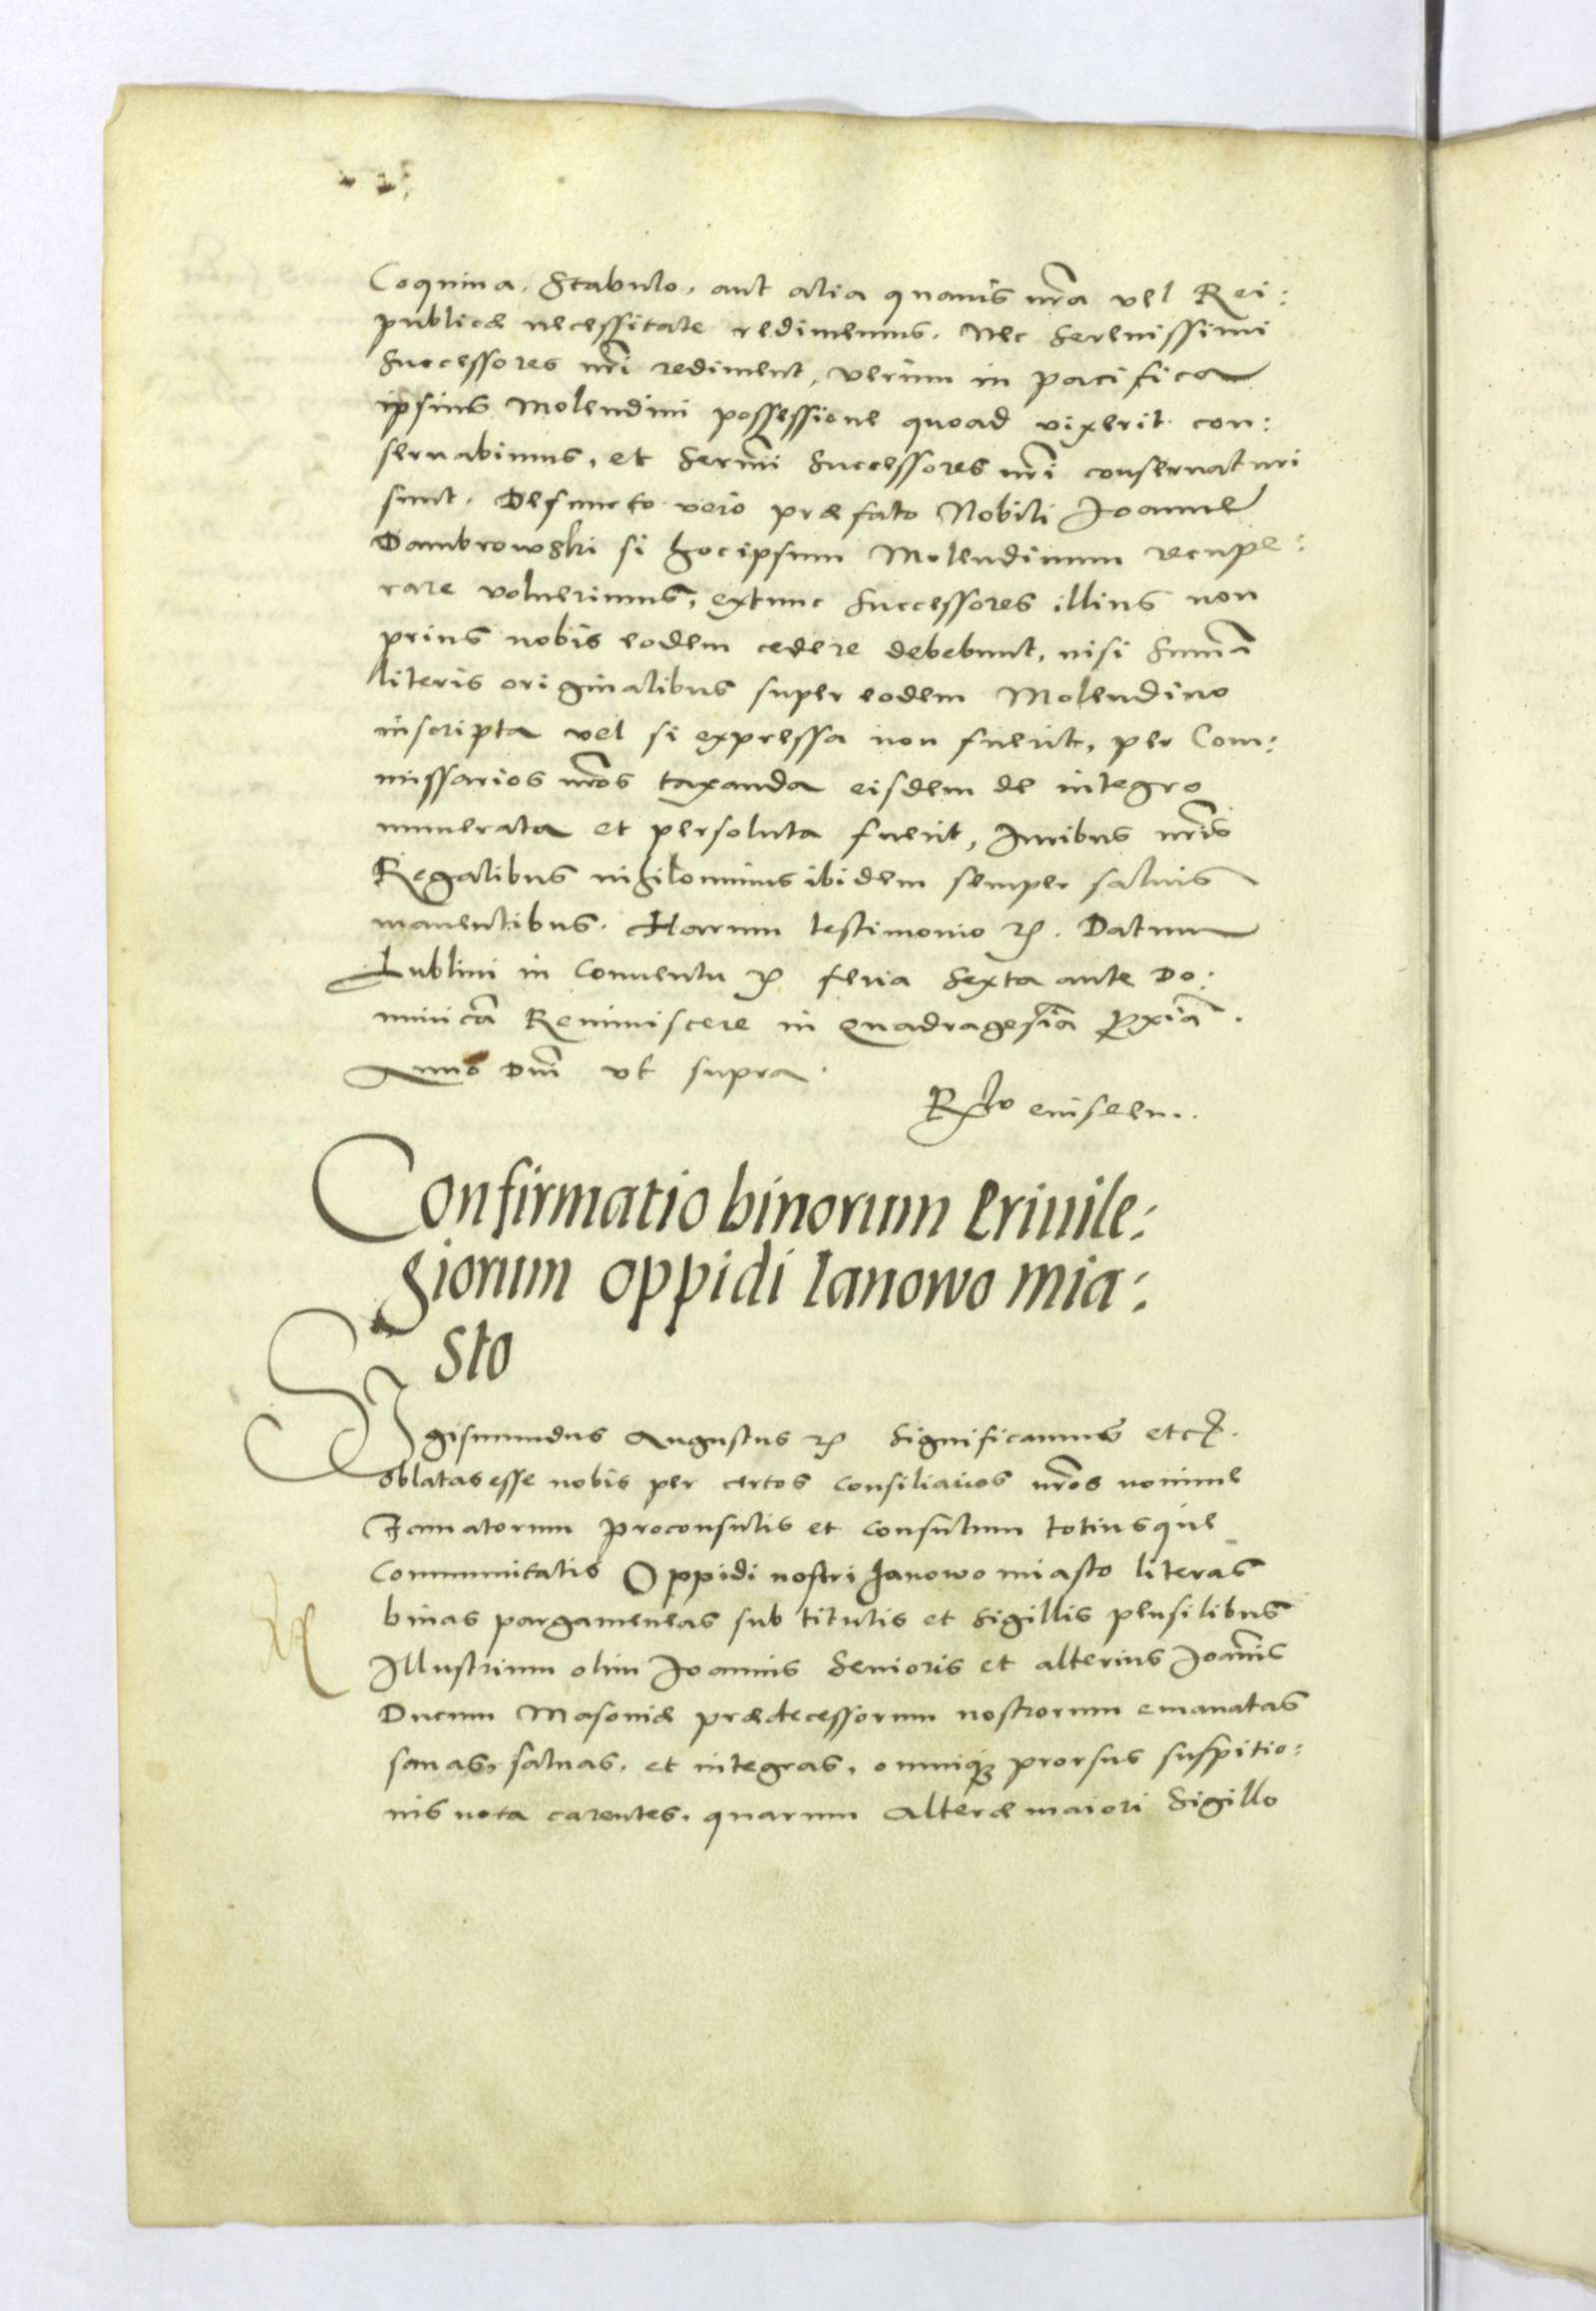 Coquina, Stabulo, aut alia quauis nr̃a vel Rei:
publicæ necessitate redimemus. Nec Serenissimi
Successores nr̃i rediment, verum in pacifica
ipsius Molendini possessione quoad vixerit con:
seruabimus, et Sermĩ Successores nr̃i conseruaturi
sunt. Defuncto vero præfato Nobili Joanne
Dambrowski si hoc ipsum Molendinum recupe:
rare voluerimus, extunc Successores illius non
prius nobis eodem cedere debebunt, nisi Summã
literis originalibus super eodem Molendino
inscripta vel si expressa non fuerit, per Com:
missarios nr̃os taxanda eisdem de integro
numerata et persoluta fuerit, Juribus nr̃is
Regalibus nihilominus ibidem semper saluis
manentibus. Harum testimonio etc. Datum
Lublini in Conuentu etc feria Sexta ante Do:
minicã Reminiscere in Quadragesĩa Proxĩa.
Anno Dnĩ vt supra.
R̃lo eiusdem.
Confirmatio binorum Priuile:
giorum oppidi Ianowo mia:
sto
SIgismundus Augustus etc Significamus etc.
oblatas esse nobis per certos Consiliarios nr̃os nomine
Famatorum proconsulis et Consulum totiusque
Communitatis Oppidi nostri Janowo miasto literas
binas pargameneas sub titulis et Sigillis pensilibus
Illustrium olim Joannis Senioris et alterius Joañis
Ducum Masoviæ prædecessorum nostrorum emanatas
sanas, saluas, et integras, omniq; prorsus suspitio:
nis nota carentes, quarum alteræ maiori Sigillo